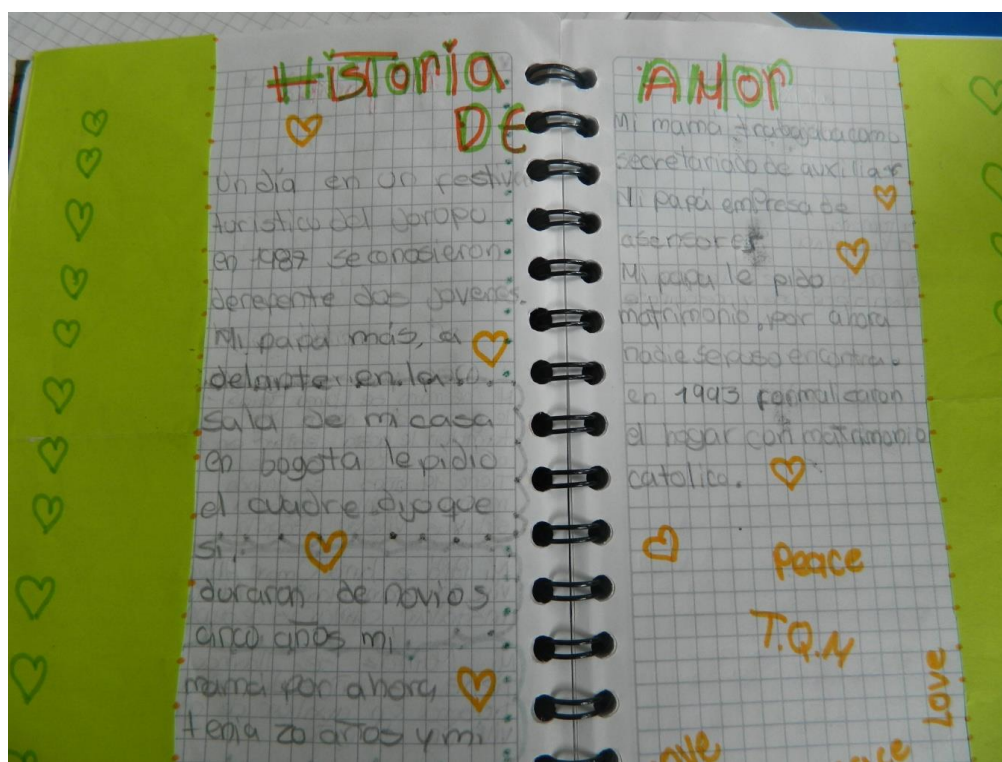 Historia
DE
Un día en un festival
turistico del Joropo
en 1987 se conosieron
derepente dos jovenes.
Mi papá más, a
delante en la
sala de mi casa
en bogota le pidio
el cuadre dijo que
si.
duraron de novios
cinco años mi
mama por ahora
tenia 20 años y mi
AMOR
Mi mama trabajaba como
secretariado de auxiliar
Mi papá empresa de
asensores
Mi papa le pido
matrimonio, por ahora
nadie se puso encontra.
en 1993 formalizaron
el hogar con matrimonio
catolico.
Peace
T.Q.M
Love